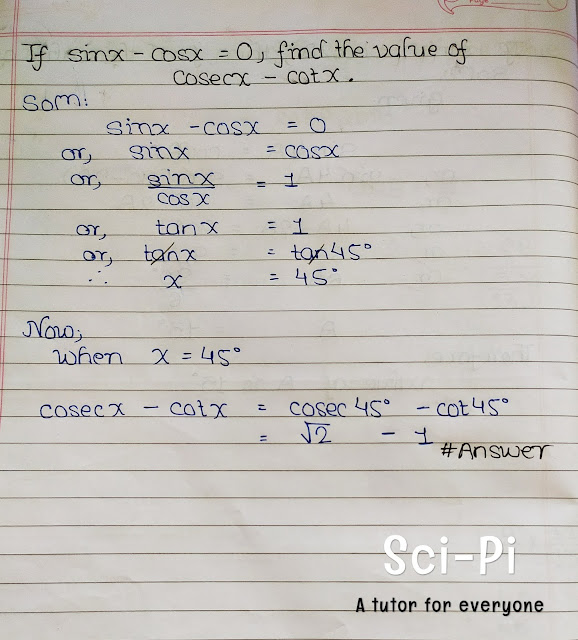 If sinx - cosx = 0, find the value of
cosecx - cotx.
Som:
sinx - cosx = 0
or, sinx = cosx
or, sinx/cosx = 1
or, tanx = 1
or, tanx = tan45°
∴ x = 45°
Now,
when x = 45°
cosecx - cotx = cosec45° - cot45°
= √2 - 1
#Answer
Sci-Pi
A tutor for everyone